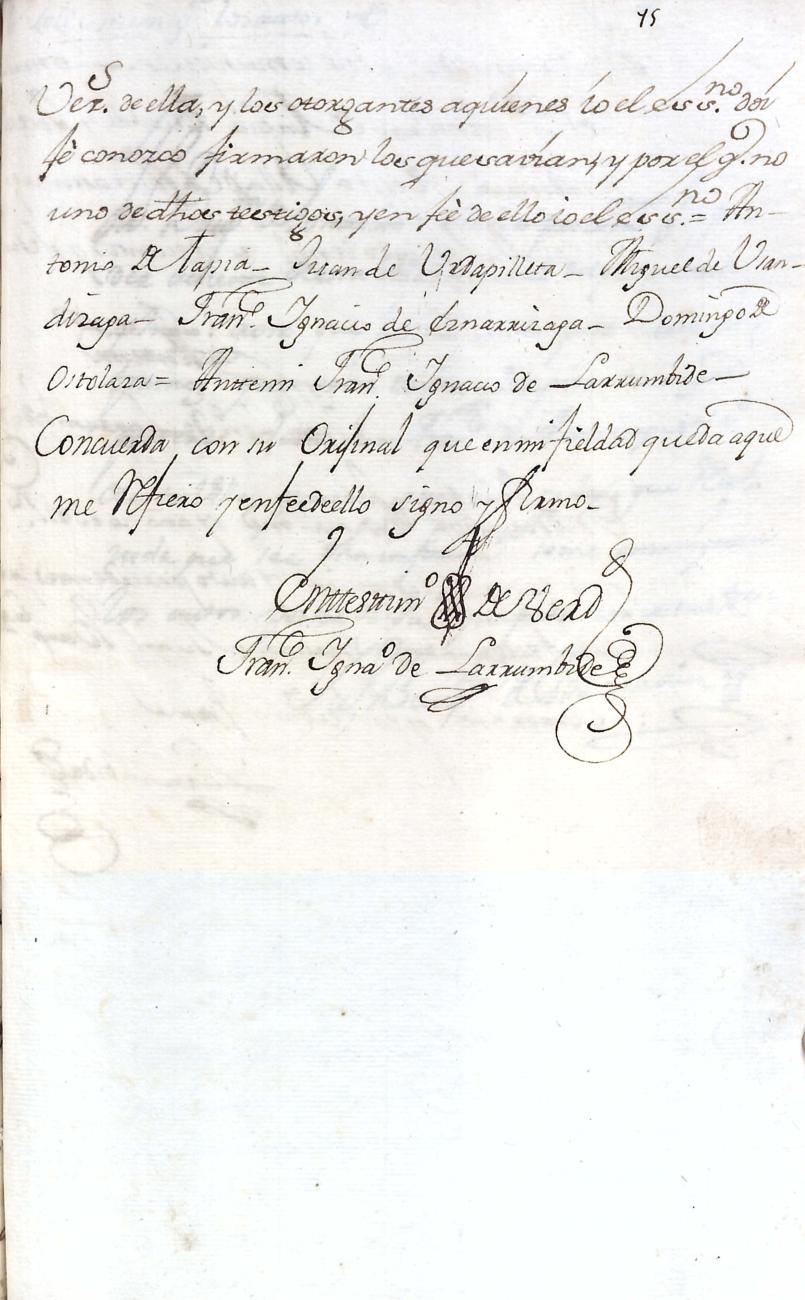 15
Vez.s de ella, y los otorgantes aquienes io el ess.no doi
fè conozco firmaron los que savian, y por el q.e no
uno de dhos testigos, y en feè de ello io el ess.no = An-
tonio de Tapia - Juan de Urdapilleta - Miguel de Vian-
dizaga - Fran.co Ignacio de Iznarrizaga - Domingo de
Ostolaza = Anttemi Fran.co Ignacio de Larrumbide -
Concuerda con su Original que en mi fieldad queda aque
me Refiero y enfeedeello signo y firmo -
Enttesttim.o de Verd
Fran.co Igna.o de Larrumbide